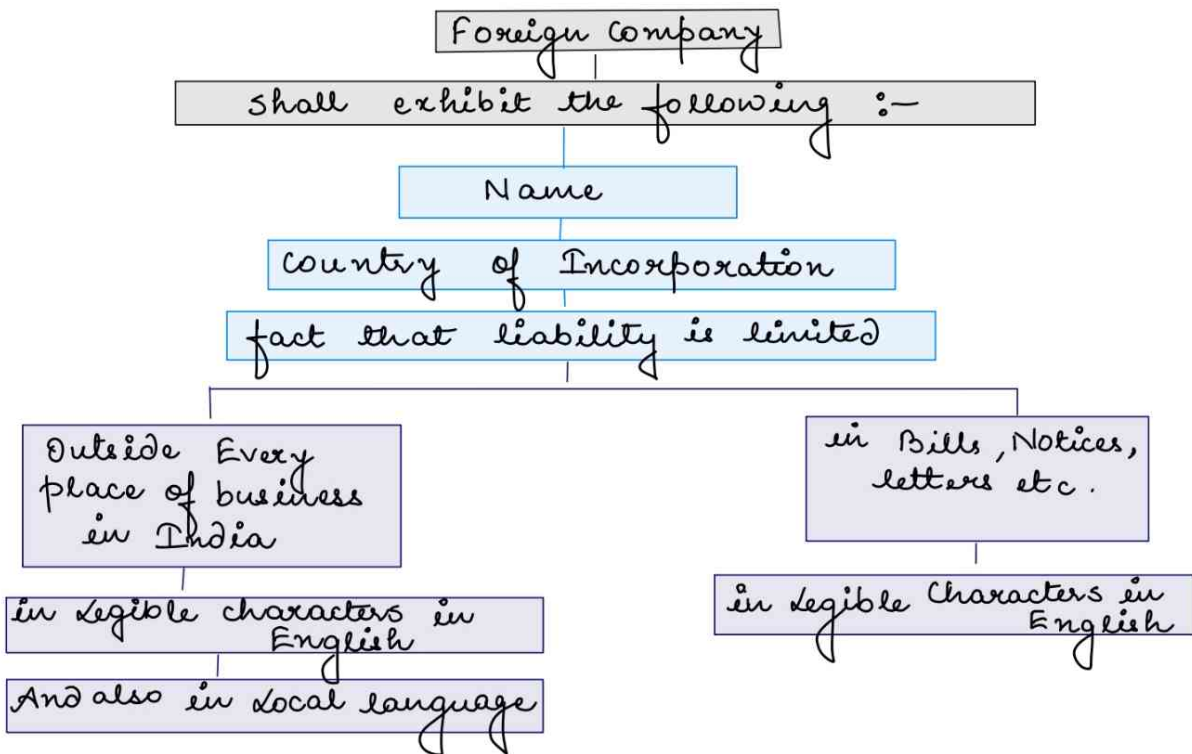 Foreign Company
shall exhibit the following :-
Name
Country of Incorporation
fact that liability is limited
Outside Every
place of business
in India
in Legible characters in
English
And also in Local language
in Bills, Notices,
letters etc.
in Legible Characters in
English